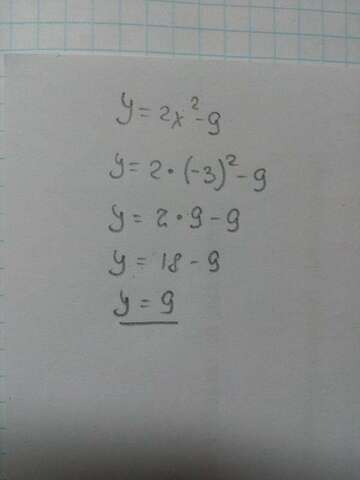 y = 2x² - 9
y = 2 • (-3)² - 9
y = 2 • 9 - 9
y = 18 - 9
y = 9